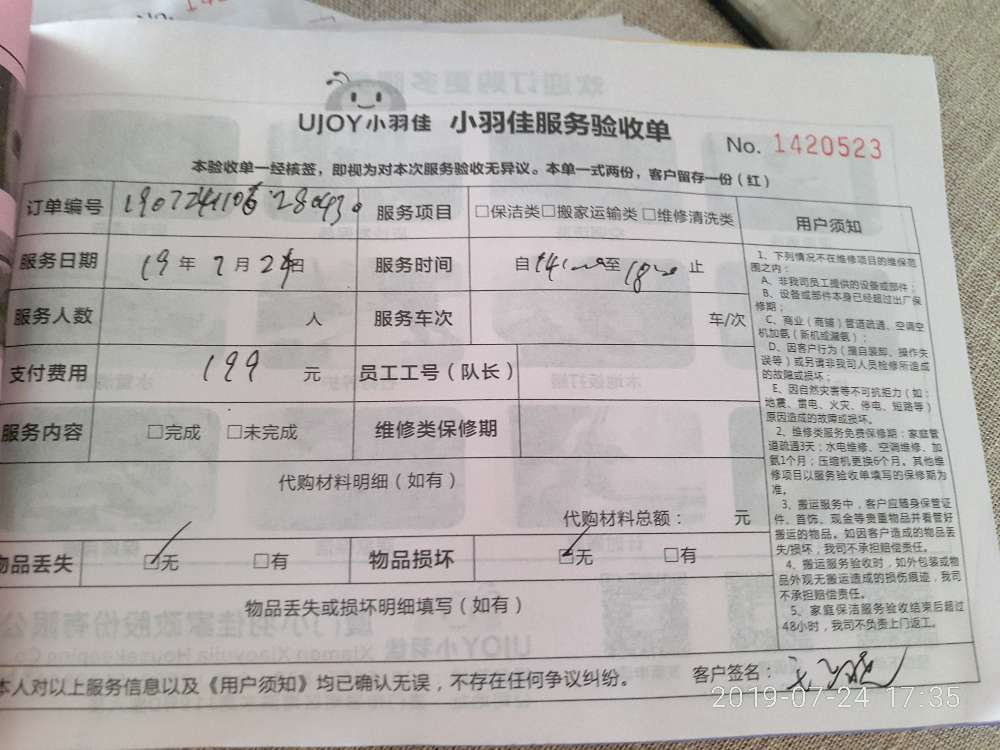 UJOY小羽佳 小羽佳服务验收单
No. 1420523
本验收单一经核签，即视为对本次服务验收无异议。本单一式两份，客户留存一份（红）
订单编号 服务项目 □保洁类□搬家运输类□维修清洗类
服务日期 19年7月24日 服务时间 自 至 止
服务人数 人 服务车次 车/次
支付费用 199 元 员工工号（队长）
服务内容 □完成 □未完成 维修类保修期
代购材料明细（如有）
代购材料总额： 元
物品丢失 ☑无 □有 物品损坏 ☑无 □有
物品丢失或损坏明细填写（如有）
本人对以上服务信息以及《用户须知》均已确认无误，不存在任何争议纠纷。 客户签名：
用户须知
1、下列情况不在维修项目的维保范
围之内：
A、非我司员工提供的设备或部件；
B、设备或部件本身已经超过出厂保
修期；
C、商业（商铺）管道疏通、空调空
机加氨（新机或漏氨）；
D、因客户行为（擅自装卸、操作失
误等）或另请非我司人员检修所造成
的故障或损坏；
E、因自然灾害等不可抗拒力（如：
地震、雷电、火灾、停电、短路等）
原因造成的故障或损坏。
2、维修类服务免费保修期：家庭管
道疏通3天；水电维修、空调维修、加
氨1个月；压缩机更换6个月。其他维
修项目以服务验收单填写的保修期为
准。
3、搬运服务中，客户应随身保管证
件、首饰、现金等贵重物品并看管好
搬运的物品。如因客户造成的物品丢
失/损坏，我司不承担赔偿责任。
4、搬运服务验收时，如外包装或物
品外观无搬运造成的损伤痕迹，我司
不承担赔偿责任。
5、家庭保洁服务验收结束后超过
48小时，我司不负责上门返工。
2019-07-24 17:35